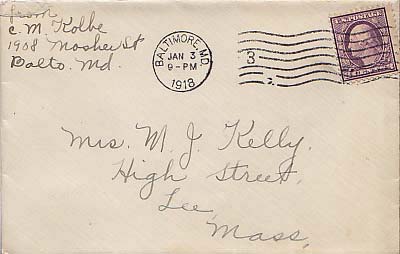 from
C. M. Kolbe
1908 Mosher St
Balto. Md.
BALTIMORE, MD.
JAN 3
9-PM
1918
3
Mrs. M. J. Kelly.
High Street,
Lee,
Mass,